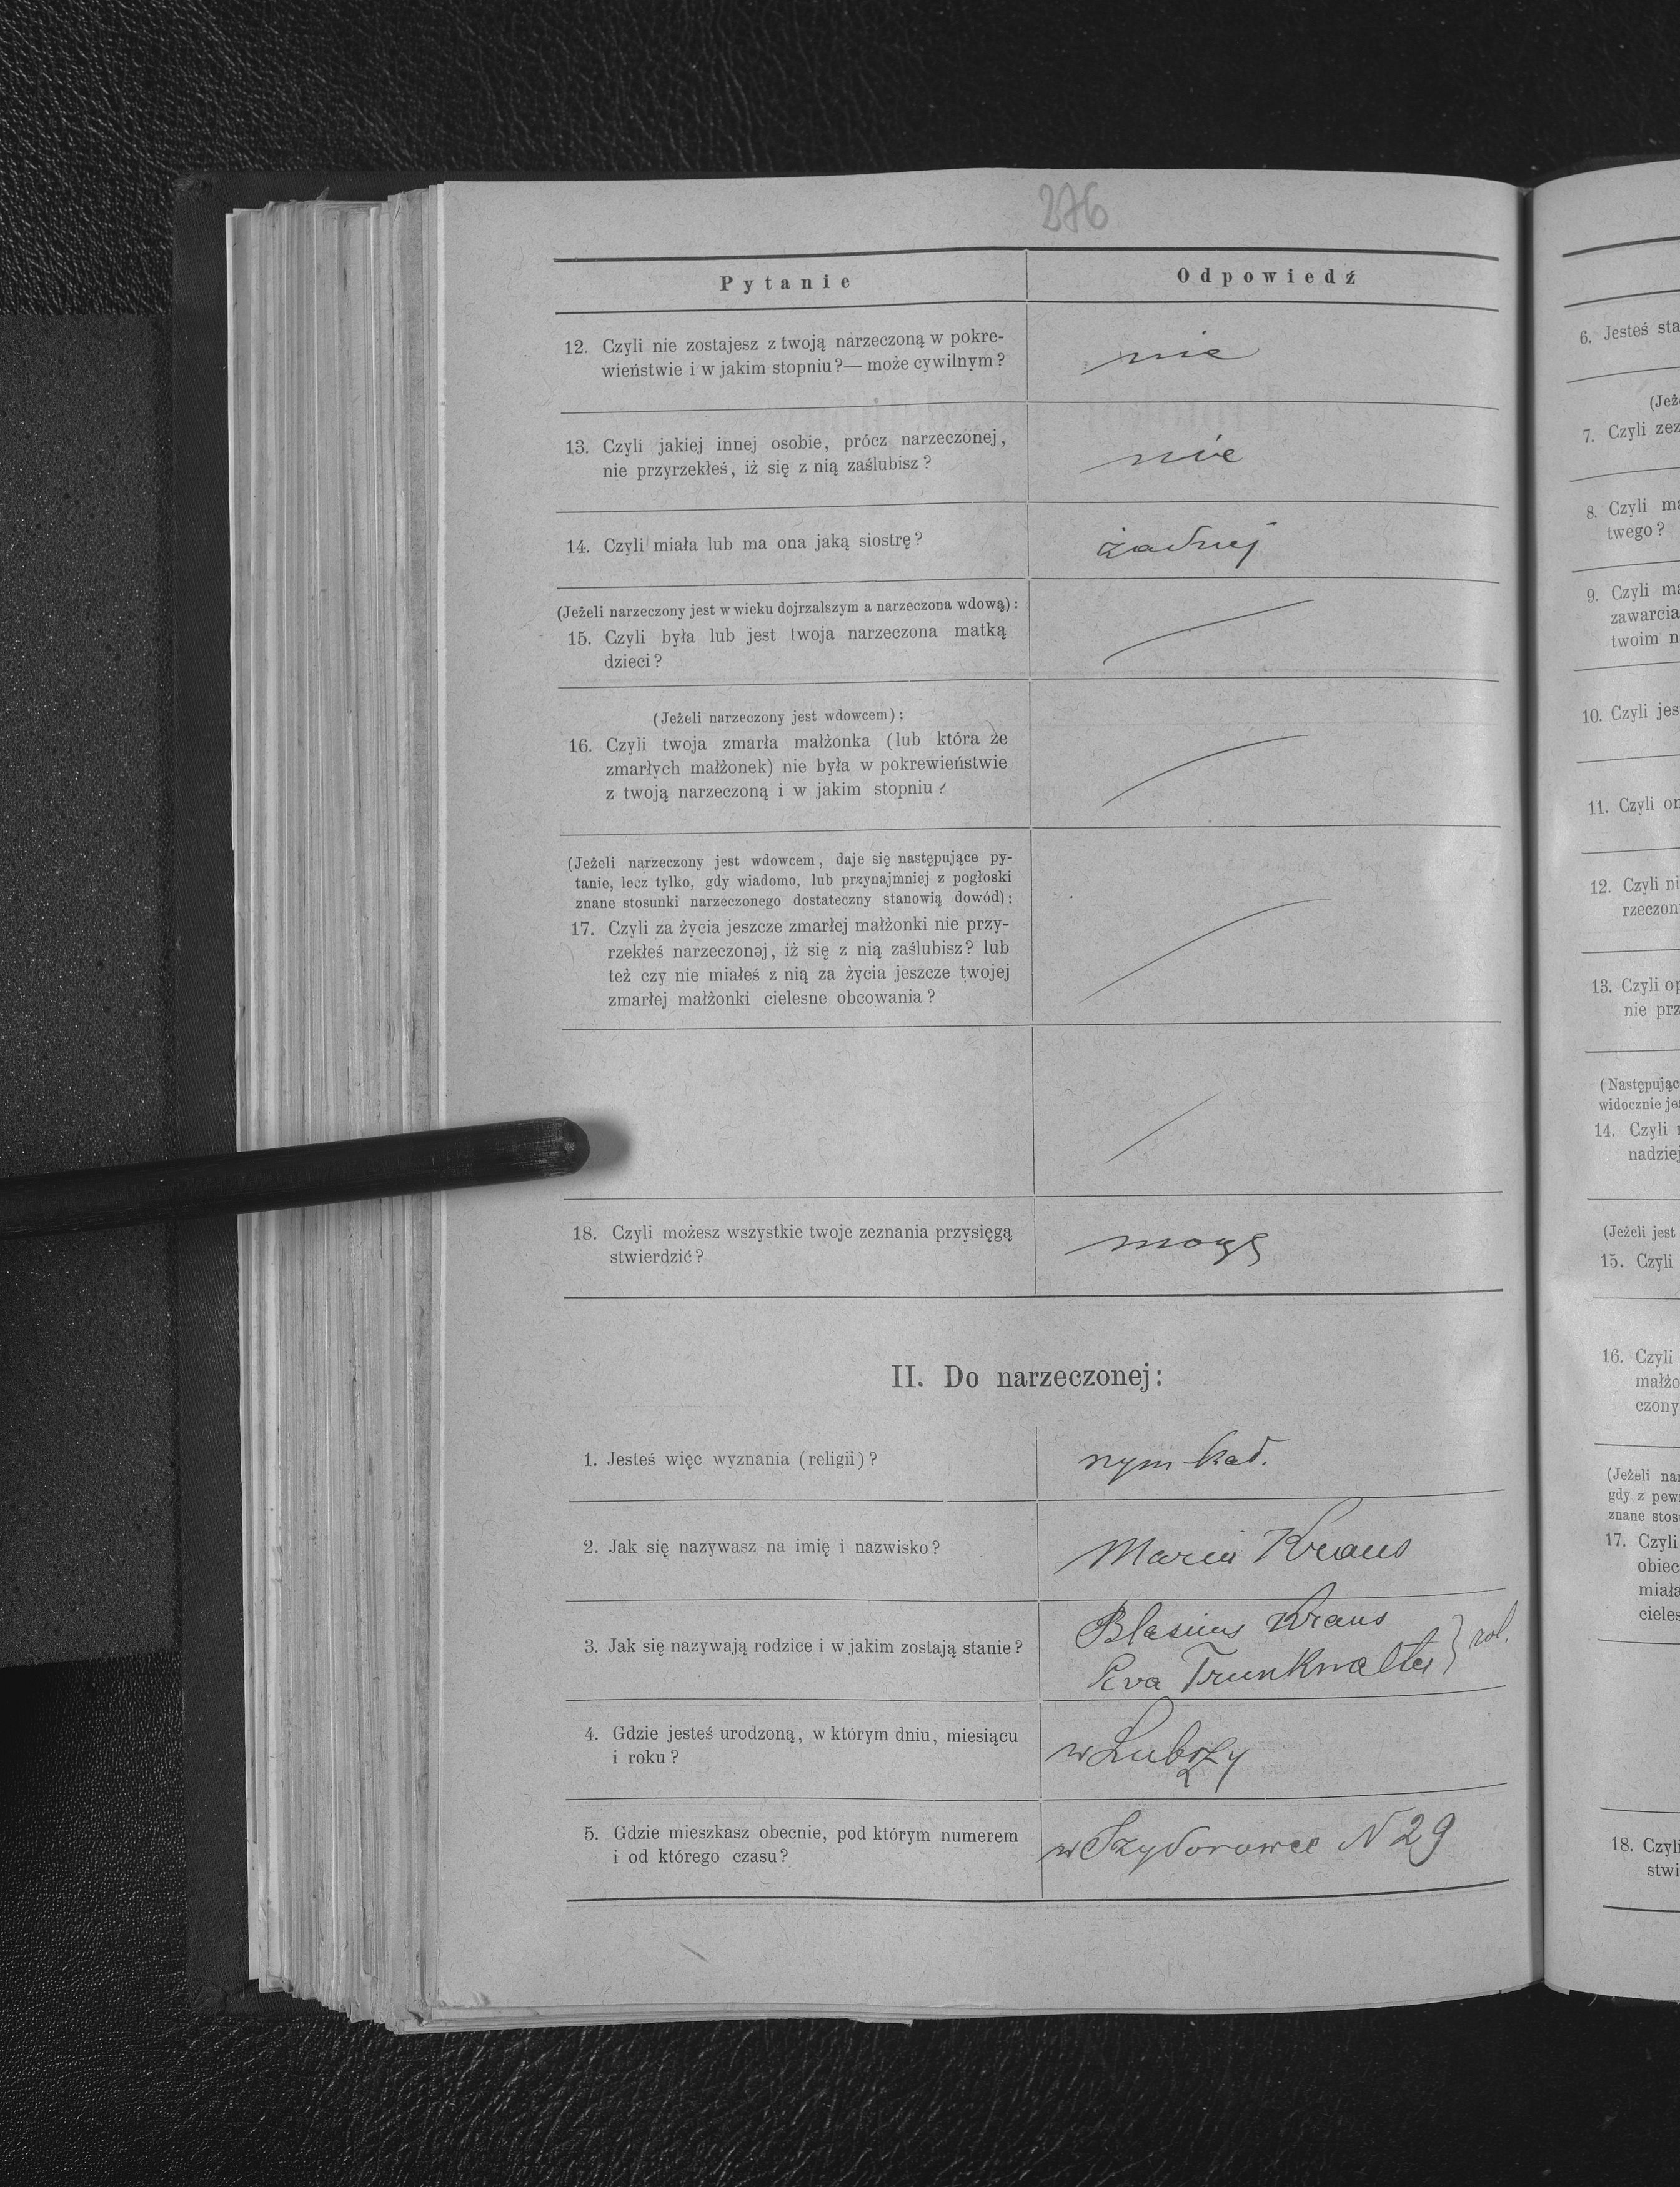 276
Pytanie
Odpowiedź
12. Czyli nie zostajesz z twoją narzeczoną w pokre-
wieństwie i w jakim stopniu?— może cywilnym?
nie
13. Czyli jakiej innej osobie, prócz narzeczonej,
nie przyrzekłeś, iż się z nią zaślubisz?
nie
14. Czyli miała lub ma ona jaką siostrę?
żadnej
(Jeżeli narzeczony jest w wieku dojrzalszym a narzeczona wdową):
15. Czyli była lub jest twoja narzeczona matką
dzieci?
(Jeżeli narzeczony jest wdowcem):
16. Czyli twoja zmarła małżonka (lub która ze
zmarłych małżonek) nie była w pokrewieństwie
z twoją narzeczoną i w jakim stopniu?
(Jeżeli narzeczony jest wdowcem, daje się następujące py-
tanie, lecz tylko, gdy wiadomo, lub przynajmniej z pogłoski
znane stosunki narzeczonego dostateczny stanowią dowód):
17. Czyli za życia jeszcze zmarłej małżonki nie przy-
rzekłeś narzeczonej, iż się z nią zaślubisz? lub
też czy nie miałeś z nią za życia jeszcze twojej
zmarłej małżonki cielesne obcowania?
18. Czyli możesz wszystkie twoje zeznania przysięgą
stwierdzić?
mogę
II. Do narzeczonej:
1. Jesteś więc wyznania (religii)?
rzym kat.
2. Jak się nazywasz na imię i nazwisko?
Maria Kraus
3. Jak się nazywają rodzice i w jakim zostają stanie?
Blasius Kraus
Eva Trunkwalter } rol.
4. Gdzie jesteś urodzoną, w którym dniu, miesiącu
i roku?
w Lubszy
5. Gdzie mieszkasz obecnie, pod którym numerem
i od którego czasu?
w Szydorowce N 29
6. Jesteś sta
(Jeż
7. Czyli zez
8. Czyli ma
twego?
9. Czyli ma
zawarcia
twoim n
10. Czyli jes
11. Czyli on
12. Czyli ni
rzeczon
13. Czyli op
nie prz
(Następując
widocznie je
14. Czyli
nadziej
(Jeżeli jest
15. Czyli
16. Czyli
małżo
czony
(Jeżeli nar
gdy z pew
znane stos
17. Czyli
obiec
miała
cieles
18. Czyli
stwi